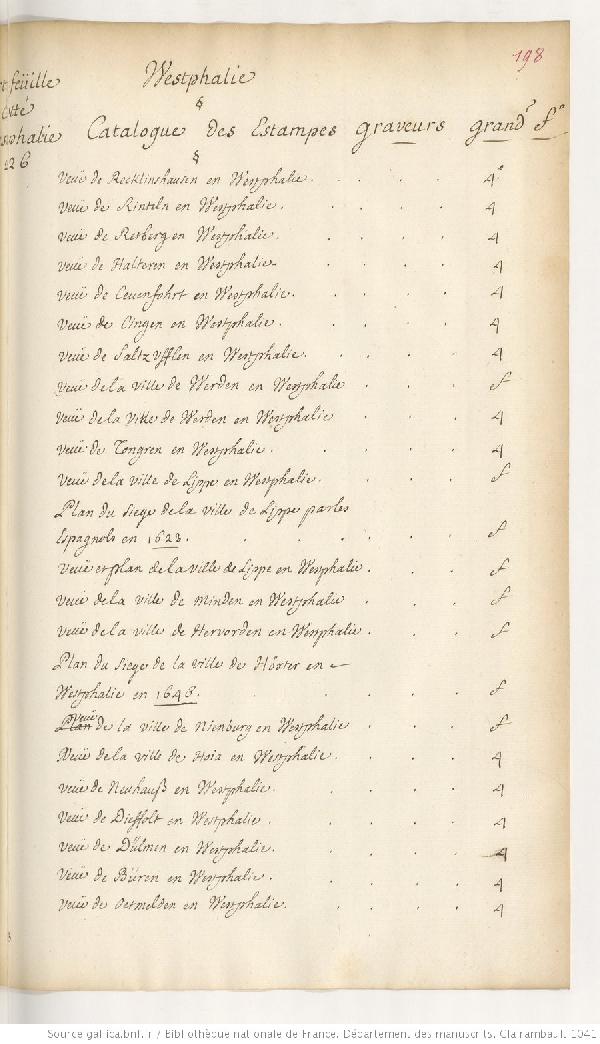 198
Westphalie
§
Catalogue des Estampes graveurs grandr fo
§
Veuë de Recklinshausen en Westphalie . . . . 4o
veuë de Rinteln en Westphalie . . . . 4
veuë de Retberg en Westphalie . . . . 4
veuë de Halteren en Westphalie . . . . 4
veuë de Ceuenfohrt en Westphalie . . . . 4
veuë de Lingen en Westphalie . . . . 4
veuë de Saltz Ufflen en Westphalie . . . . 4
veuë de la ville de Werden en Westphalie . . . f
veuë de la ville de Werden en Westphalie . . . 4
veuë de Tongren en Westphalie . . . . 4
veuë de la ville de Lippe en Westphalie . . . f
Plan du Siege de la ville de Lippe par les
Espagnols en 1623 . . . . f
veuë et plan de la ville de Lippe en Westphalie . . . f
veuë de la ville de Minden en Westphalie . . . f
veuë de la ville de Hervorden en Westphalie . . . f
Plan du Siege de la ville de Höxter en
Westphalie en 1648 . . . . f
veuë
Plan de la ville de Nienburg en Westphalie . . . f
Veuë de la ville de Hoia en Westphalie . . . 4
veuë de Neuhauß en Westphalie . . . . 4
veuë de Diepholt en Westphalie . . . . 4
veuë de Dülmen en Westphalie . . . . 4
veuë de Büren en Westphalie . . . . 4
veuë de Oetmelden en Westphalie . . . . 4
Source gallica.bnf.fr / Bibliothèque nationale de France. Département des manuscrits. Clairambault 1041